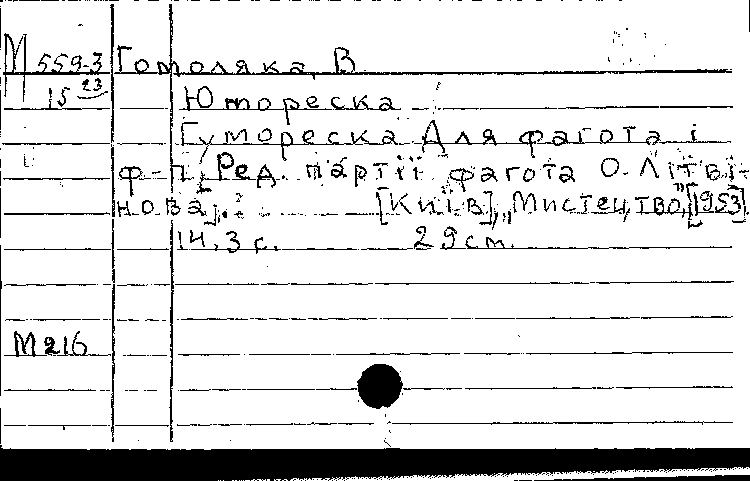 М 559-3 Гомоляка, В
15 23
Юмореска
Гумореска Для фагота і
ф-п. [Ред. партії фагота О. Літві-
нова]. [Київ], „Мистецтво", [1953]
14, 3 с. 29 см.
М 216